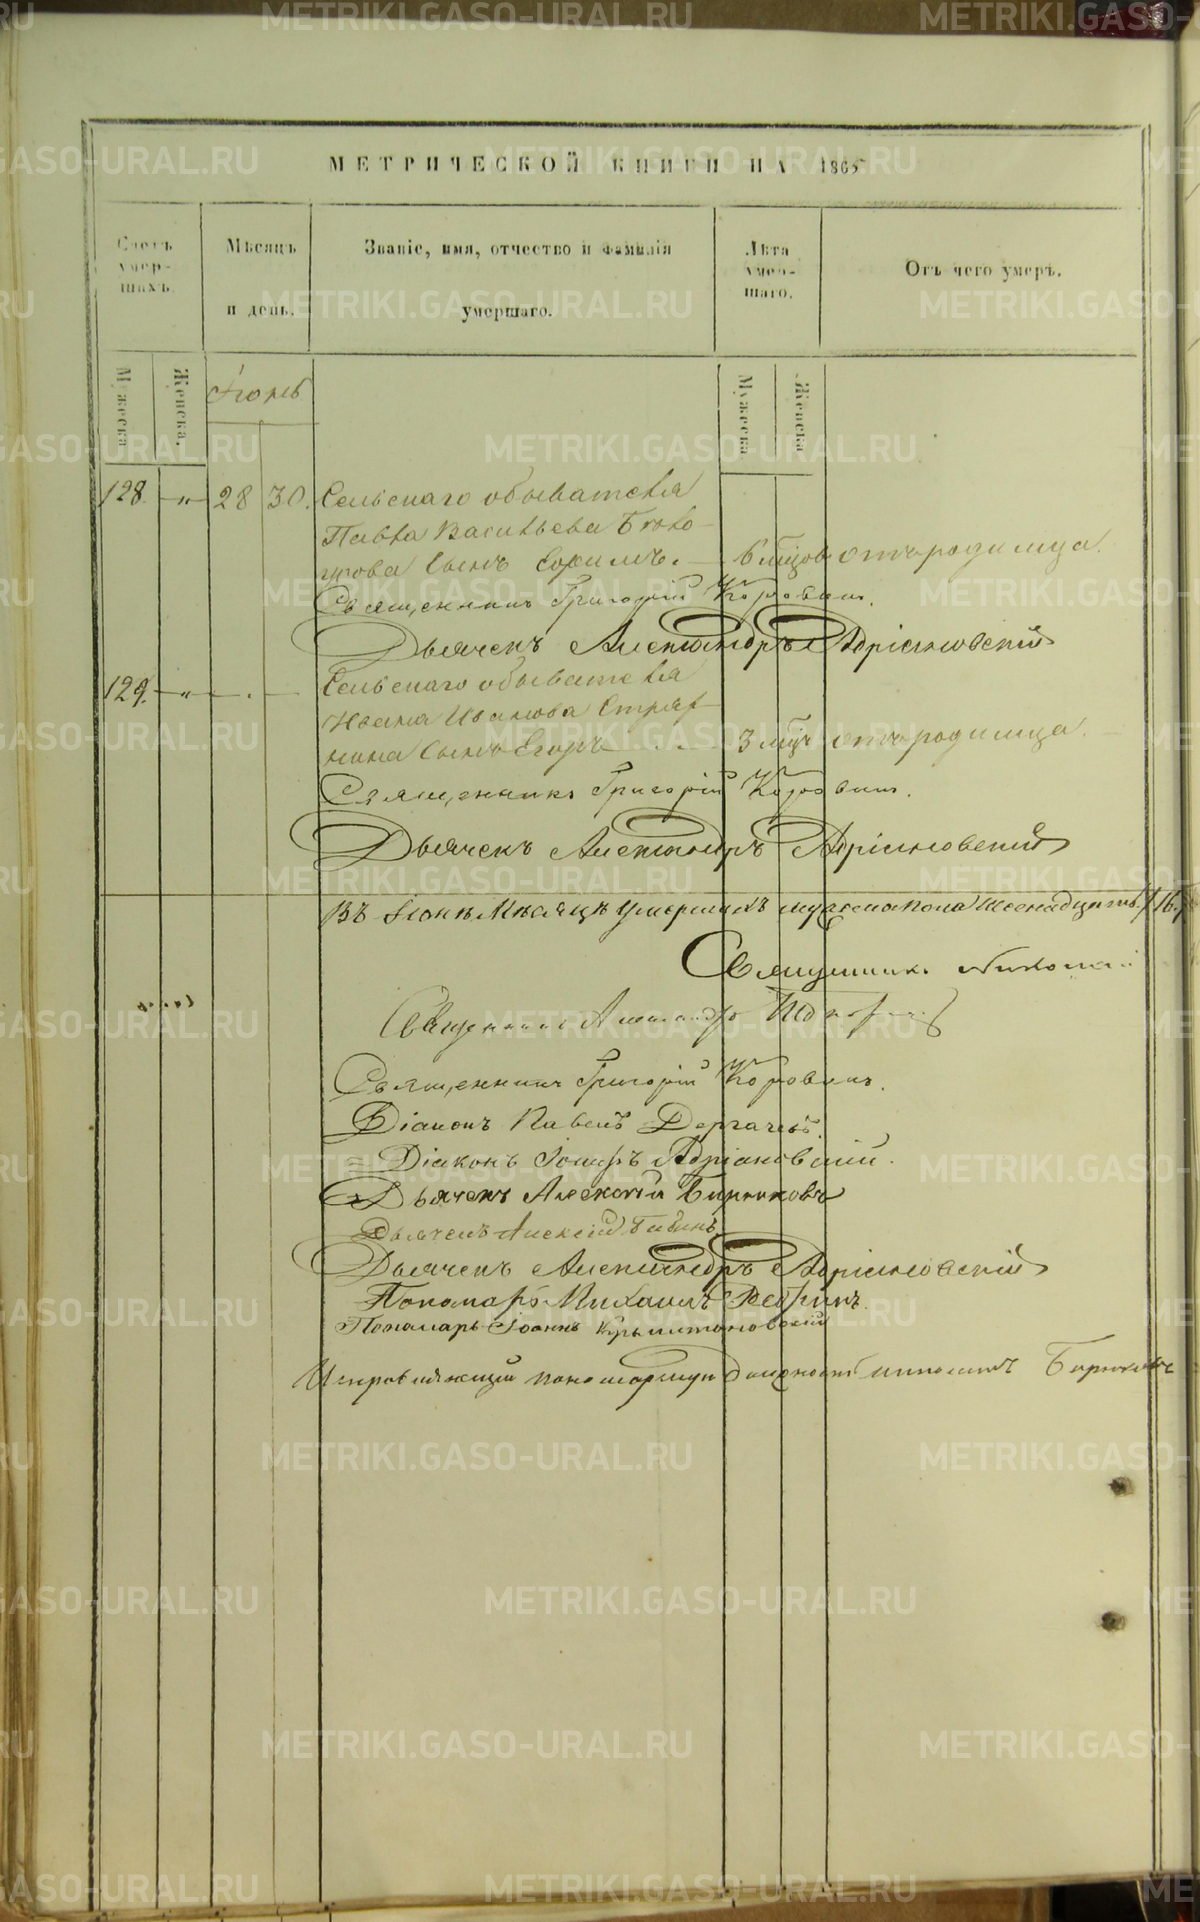 МЕТРИЧЕСКОЙ КНИГИ НА 1865
Счетъ умер-шихъ.
Мѣсяцъ и день.
Званіе, имя, отчество и фамилія умершаго.
Лѣта умер-шаго.
Отъ чего умеръ.
Мужеска
Женска.
Іюнь
Мужеска
Женска
128 " 28 30. Сельскаго обывателя
Павла Васильева
сынъ Ефимъ. — 6 мѣцовъ отъ родимца.
Священникъ Григорій Коровинъ.
Дьячекъ Александръ Адріановскій
129. " Сельскаго обывателя
Ивана Иванова Стряп-
нина сынъ Егоръ 3 мѣц отъ родимца.
Священникъ Григорій Коровинъ.
Дьячекъ Александръ Адріановскій
Въ Іюнѣ Мѣсяцѣ умершихъ мужеска пола шеснадцать /16./
Священникъ Николай
Священникъ Александръ
Священникъ Григорій Коровинъ.
Діаконъ Павелъ Дергачевъ.
Діаконъ Іосифъ Адріановскій.
Дьячекъ Алексѣй Бирюковъ
Дьячекъ Алексій Бабинъ.
Дьячекъ Александръ Адріановскій
Пономарь Михаилъ Ребринъ.
Пономарь Іоаннъ
Исправляющій пономарскую должность Бирюковъ
METRIKI.GASO-URAL.RU